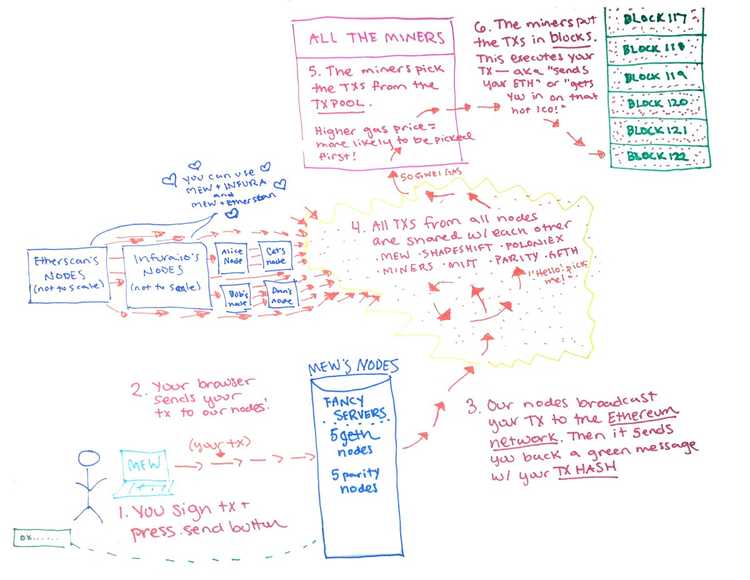 ALL THE MINERS
5. The miners pick
the TXS from the
TXPOOL.
Higher gas price =
more likely to be picked
first!
6. The miners put
the TXs in blocks.
This executes your
TX — aka "sends
your ETH" or "gets
you in on that
hot ICO!"
BLOCK 117
BLOCK 118
BLOCK 119
BLOCK 120
BLOCK 121
BLOCK 122
50 GWEI GAS
you can use
MEW + INFURA
and
MEW + Etherscan
Etherscan's
NODES
(not to scale)
Infura.io's
NODES
(not to scale)
Alice
Node
Cat's
node
Bob's
node
Dan's
node
4. All TXS from all nodes
are shared w/ each other
· MEW · SHAPESHIFT · POLONIEX
· MINERS · MIST · PARITY · GETH
"Hello! pick
me!"
MEW'S NODES
FANCY
SERVERS
5 geth
nodes
5 parity
nodes
2. Your browser
sends your
tx to our nodes!
(your tx)
MEW
1. YOU sign tx +
press send button
0x......
3. Our nodes broadcast
your TX to the Ethereum
network. Then it sends
you back a green message
w/ your TX HASH